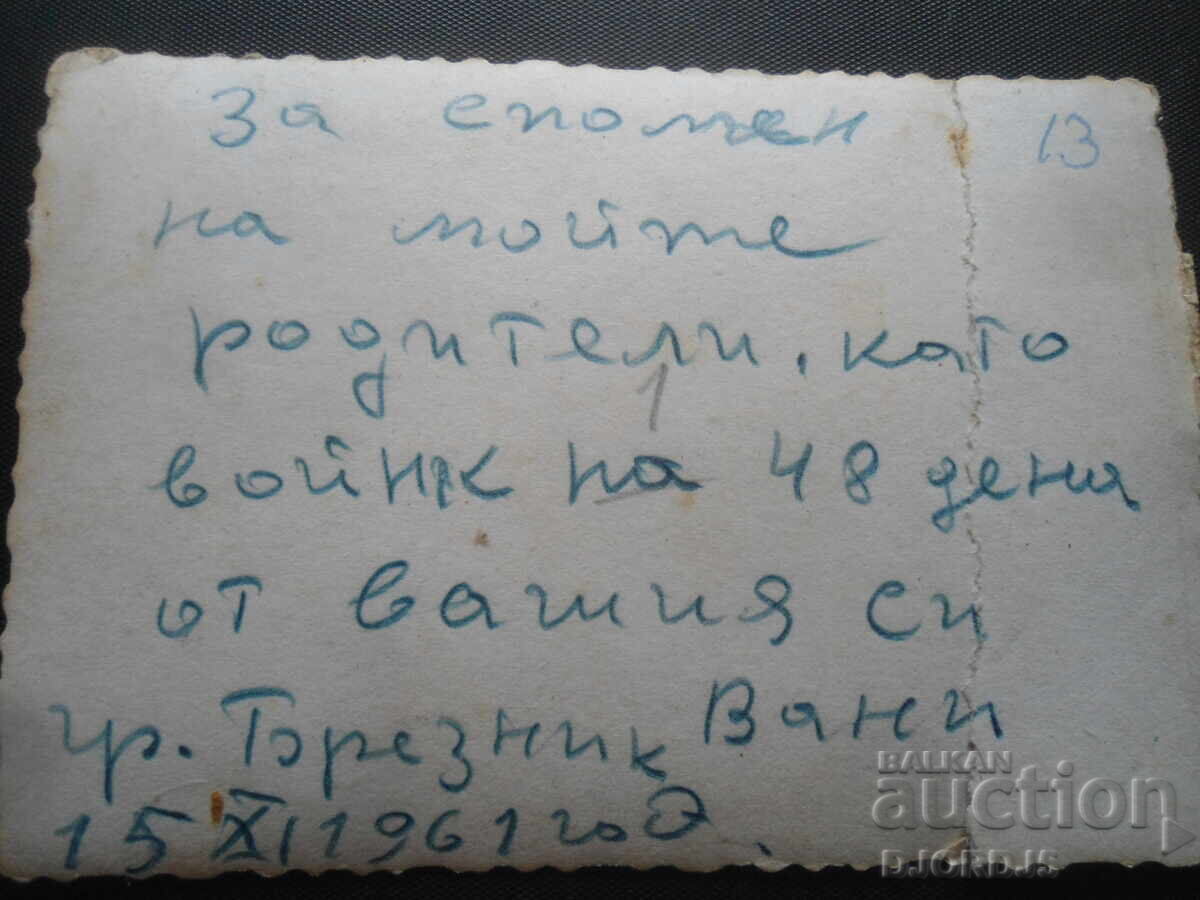 за спомен 13
на мойте
родители. като
войник на 48 деня
от вашия си
гр. Брезник Вани
15 XI 1961 год.
BALKAN
auction
DJORDJ5